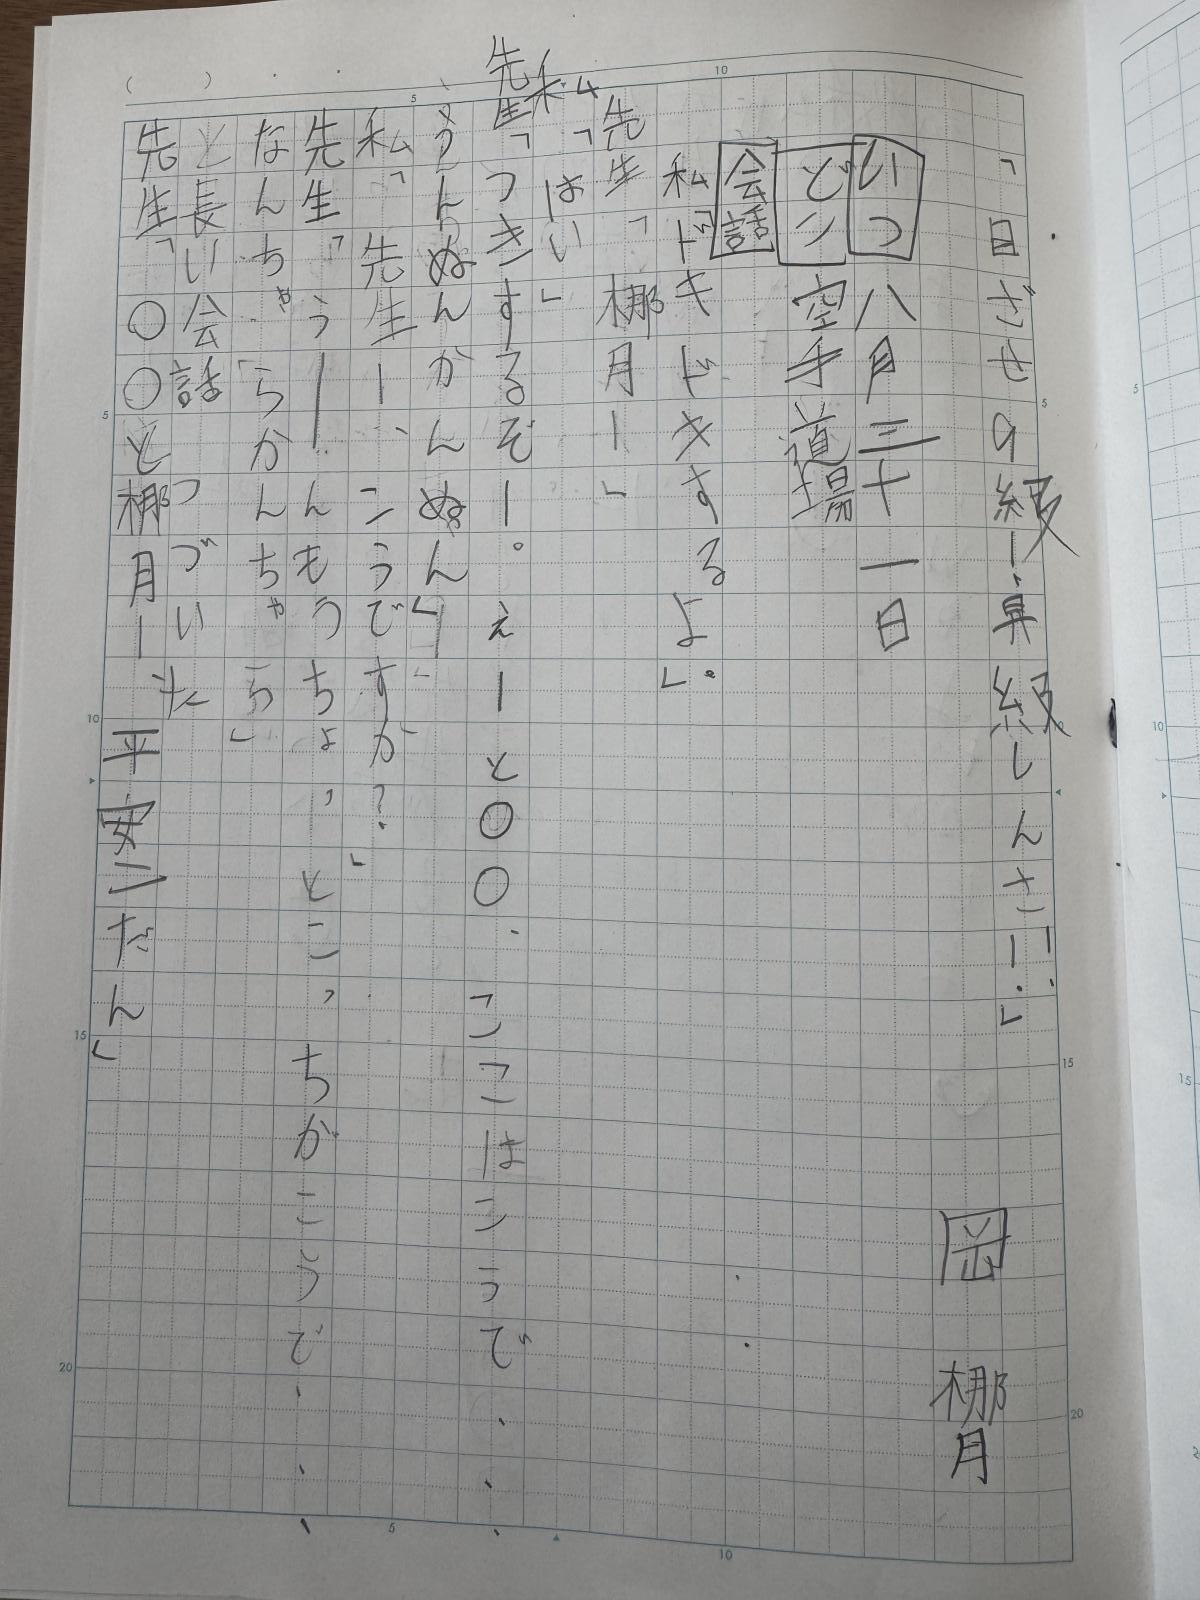 「目ざせ9級！準級しんさ！！」
岡 梛月
いつ 八月三十一日
どこ 空手道場
会話
私「ドキドキするよ。」
先生「梛月ー」
私「はい」
先生「つきするぞー。えーと〇〇.ここはこうで・・・
うんぬんかんぬん」
私「先生ー、こうですか？」
先生「うーんもうちょ,とこ,ちがこうで・・・
なんちゃらかんちゃら」
と長い会話つづいた
先生「〇〇と梛月ー平安二だん」